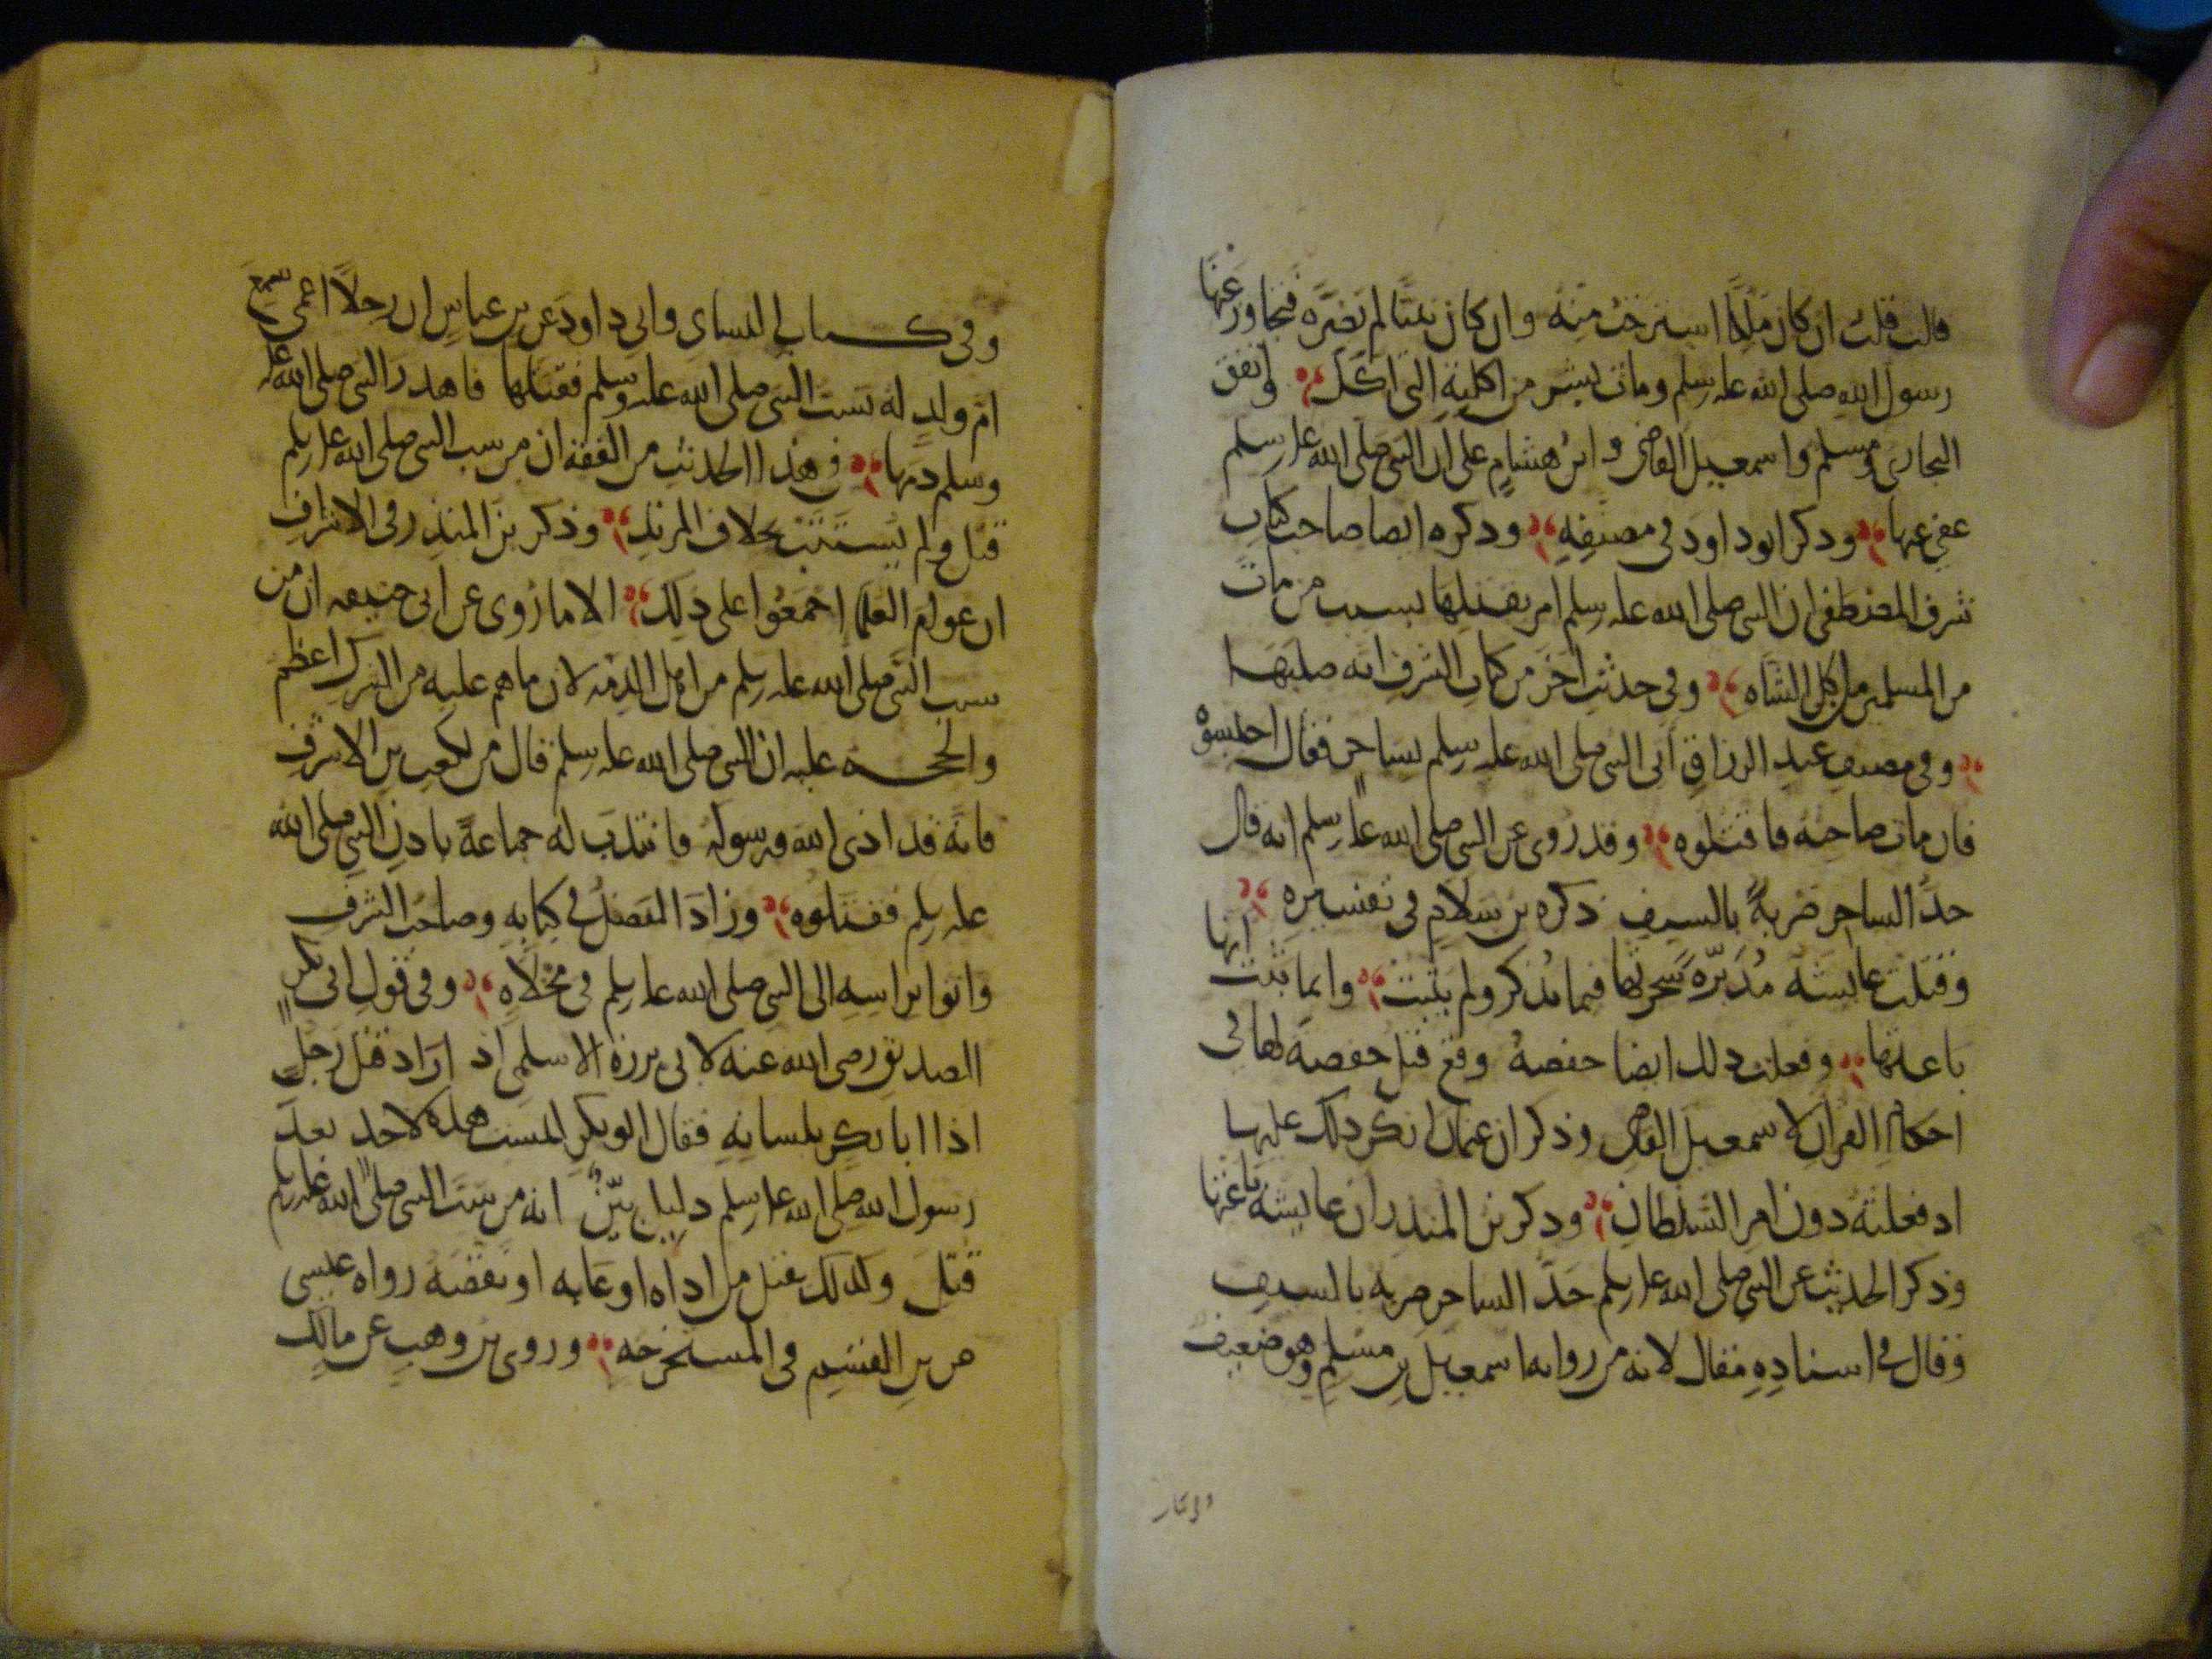 قالت قلت ان كان ملكا استرحت منه وان كان نبيا لم تضره فتجاوز عنها
رسول الله صلى الله عليه وسلم ومات بشر من اكلته التي اكل واتفق
البخاري ومسلم واسمعيل القاضي وابن هشام على ان النبي صلى الله عليه وسلم
عفى عنها وذكر ابو داود في مصنفه وذكره ايضا صاحب كتاب
شرف المصطفى ان النبي صلى الله عليه وسلم امر بقتلها بسبب من مات
من المسلمين من اكل الشاه وفي حديث اخر من كتاب الشرف انه صلبها
وفي مصنف عبد الرزاق اتى النبي صلى الله عليه وسلم بساحر فقال احبسوه
فان مات صاحبه فاقتلوه وقد روى عن النبي صلى الله عليه وسلم انه قال
حد الساحر ضربة بالسيف ذكره بن سلام في تفسيره
وقتلت عايشه مدبره سحرتها فيما يذكر ولم يثبت وانما ثبت انها
باعتها وفعلت ذلك ايضا حفصه وقع قتل حفصة لها في
احكام القران لاسمعيل القاضي وذكر ان عثمان انكر ذلك عليها
اذ فعلته دون امر السلطان وذكر بن المنذر ان عايشه باعتها
وذكر الحديث عن النبي صلى الله عليه وسلم حد الساحر ضربه بالسيف
وقال في اسناده مقال لانه من روايه اسمعيل بن مسلم وهو ضعيف
وفي كتاب النساي وابي داود عن بن عباس ان رجلا اعمى سمع
ام ولد له تسب النبي صلى الله عليه وسلم فقتلها فاهدر النبي صلى الله عليه
وسلم دمها في هذا الحديث من الفقه ان من سب النبي صلى الله عليه وسلم
قتل ولم يستتب بخلاف المرتد وذكر بن المنذر في الاشراف
ان عوام العلما اجمعوا على ذلك الا ما روى عن ابي حنيفه ان من
سب النبي صلى الله عليه وسلم من اهل الذمه لان ما هم عليه من الشرك اعظم
والحجه عليه ان النبي صلى الله عليه وسلم قال من لكعب بن الاشرف
فانه قد اذى الله ورسوله فانتدب له جماعة باذن النبي صلى الله
عليه وسلم فقتلوه وزاد المفضل في كتابه وصاحب الشرف
واتوا براسه الى النبي صلى الله عليه وسلم في مخلاه وفي قول ابي بكر
الصديق رضي الله عنه لابي برزة الاسلمي اذ اراد قتل رجل
اذا ابا بكر بلسانه فقال ابو بكر ليست هذه لاحد بعد
رسول الله صلى الله عليه وسلم دليل بيّن انه من سب النبي صلى الله عليه وسلم
قتل وكذلك يقتل من اذاه او عابه او نقصه رواه عيسى
عن بن القسم في المستخرجه وروى بن وهب عن مالك